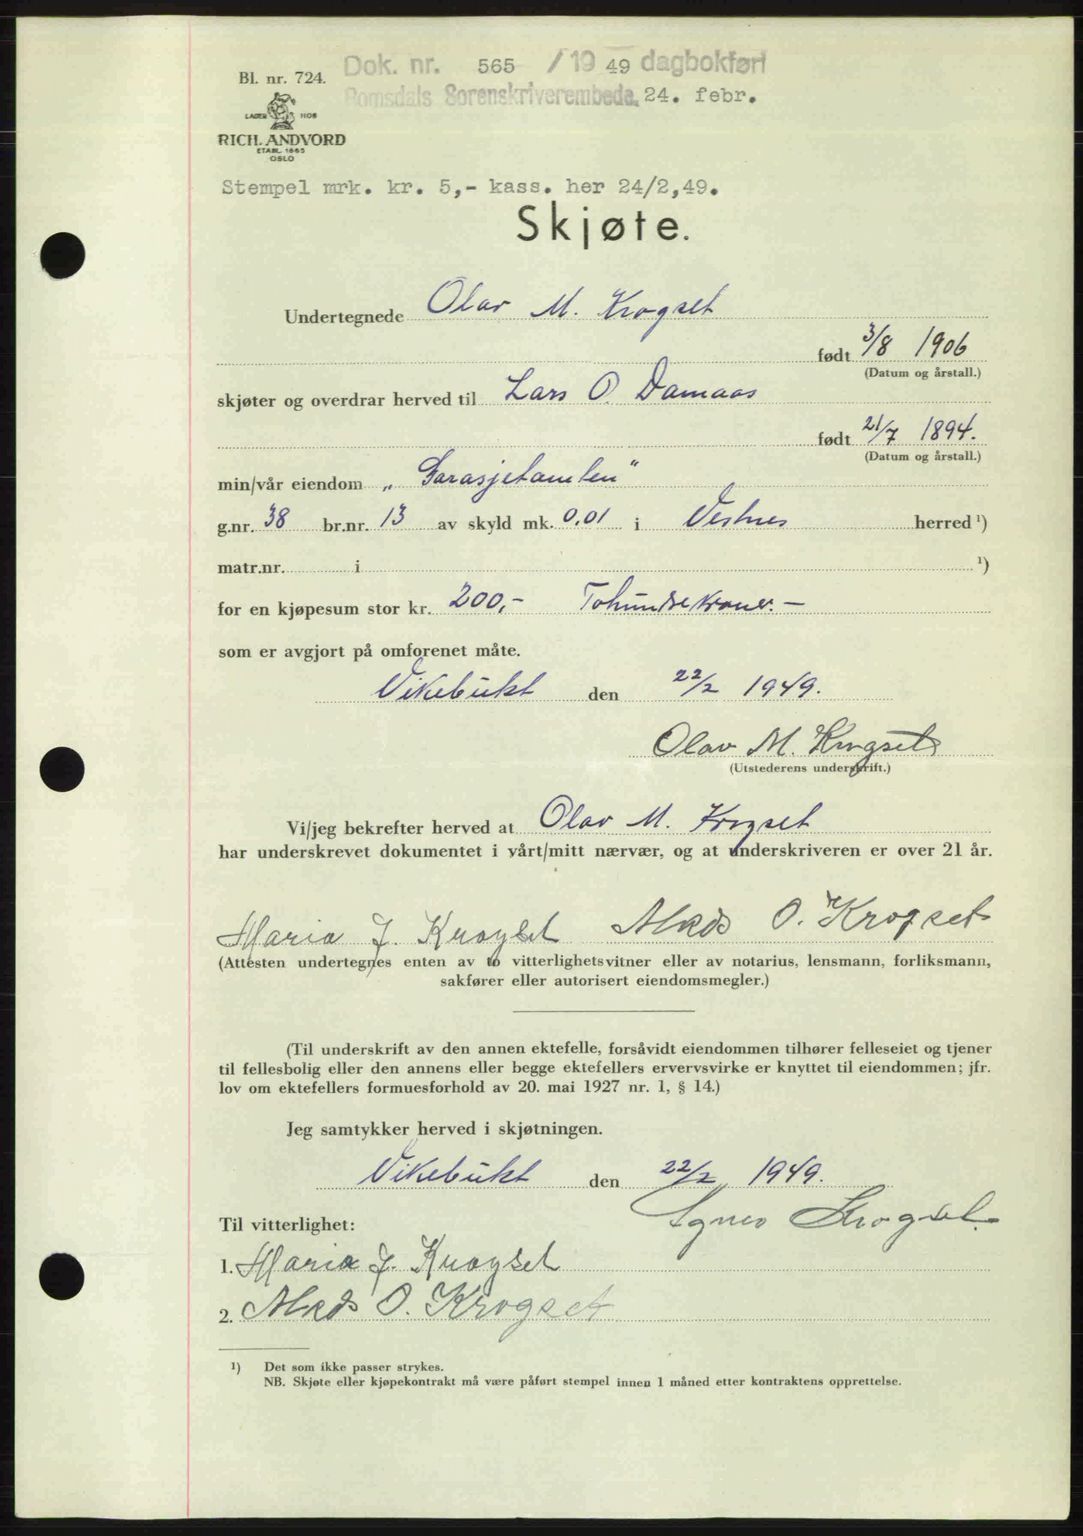 Dok. nr. 565 / 1949 dagbokført
Bl. nr. 724.
Romsdals Sorenskriverembede, 24. febr.
LAGER HOS
RICH. ANDVORD
ETABL. 1865
OSLO
Stempel mrk. kr. 5,- kass. her 24/2,49.
Skjøte.
Undertegnede Olav M. Krogset
født 3/8 1906
(Datum og årstall.)
skjøter og overdrar herved til Lars O. Damaas
født 21/7 1894.
(Datum og årstall.)
min/vår eiendom „Garasjetomten"
g.nr. 38 br.nr. 13 av skyld mk. 0.01 i Vestnes herred ¹)
matr.nr. i ¹)
for en kjøpesum stor kr. 200,- Tohundrekroner.-
som er avgjort på omforenet måte.
Vikebukt den 22/2 1949.
Olav M. Krogset
(Utstederens underskrift.)
Vi/jeg bekrefter herved at Olav M. Krogset
har underskrevet dokumentet i vårt/mitt nærvær, og at underskriveren er over 21 år.
Maria J. Krogset O. Krogset
(Attesten undertegnes enten av to vitterlighetsvitner eller av notarius, lensmann, forliksmann,
sakfører eller autorisert eiendomsmegler.)
(Til underskrift av den annen ektefelle, forsåvidt eiendommen tilhører felleseiet og tjener
til fellesbolig eller den annens eller begge ektefellers ervervsvirke er knyttet til eiendommen; jfr.
lov om ektefellers formuesforhold av 20. mai 1927 nr. 1, § 14.)
Jeg samtykker herved i skjøtningen.
Vikebukt den 22/2 1949.
Agnes Krogset.
Til vitterlighet:
1. Maria J. Krogset
2. O. Krogset
¹) Det som ikke passer strykes.
NB. Skjøte eller kjøpekontrakt må være påført stempel innen 1 måned etter kontraktens opprettelse.